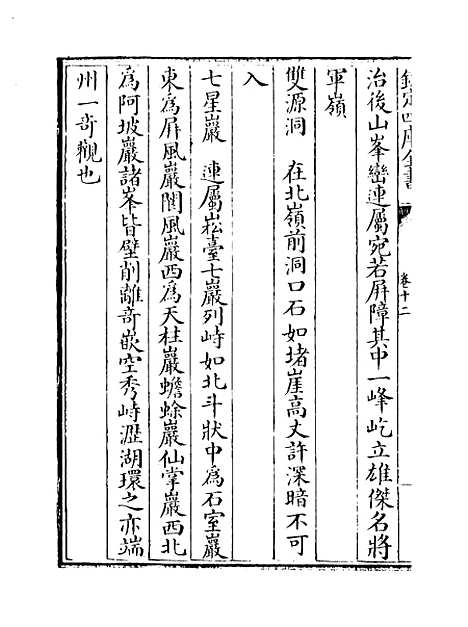 欽定四庫全書
卷十二
治後山峯巒連屬宛若屏障其中一峰屹立雄傑名將
軍嶺
雙源洞　在北嶺前洞口石如堵崖高丈許深暗不可
入
七星巖　連屬崧臺七巖列峙如北斗狀中為石室巖
東為屏風巖閬風巖西為天柱巖蟾蜍巖仙掌巖西北
為阿坡巖諸峯皆壁削離奇嵌空秀峙瀝湖環之亦端
州一奇觀也